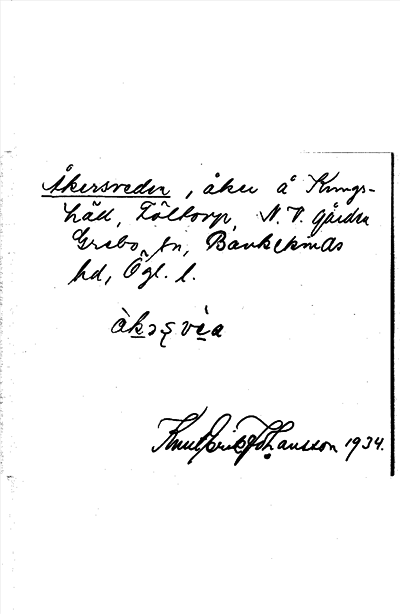 Åkersveden, åker å Kungs-
häll, Föltorp, N.V. gården
Grebo sn, Bankekinds
hd, Ögl. l.
Knut Erik Johansson 1934.